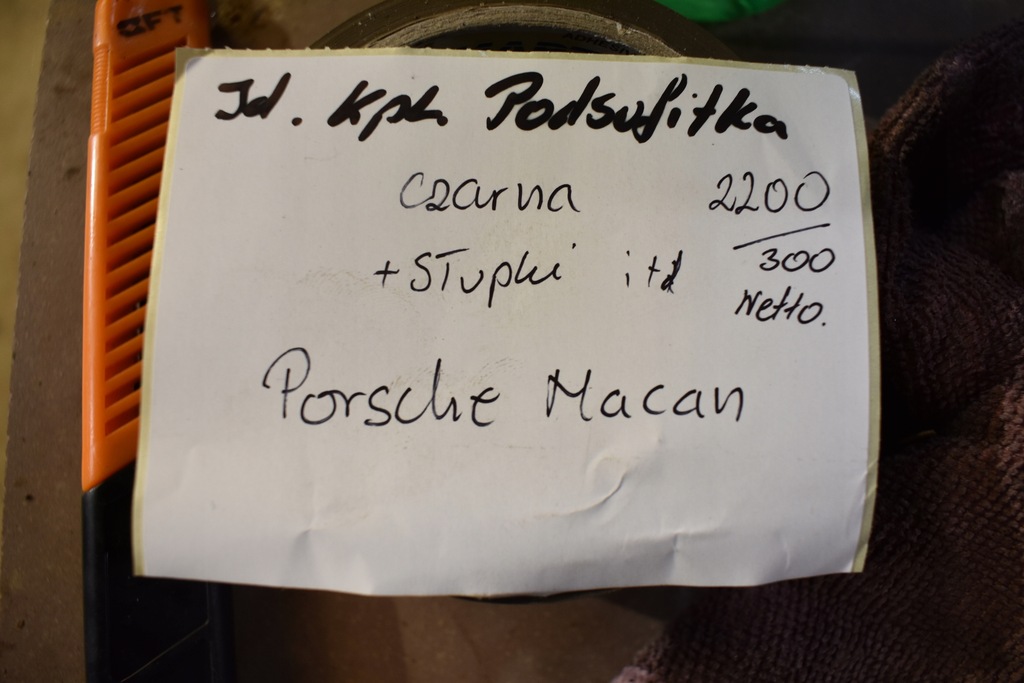 Jd. Kpl. Podsufitka
Czarna 2200
+ Słupki itd 300
Netto.
Porsche Macan